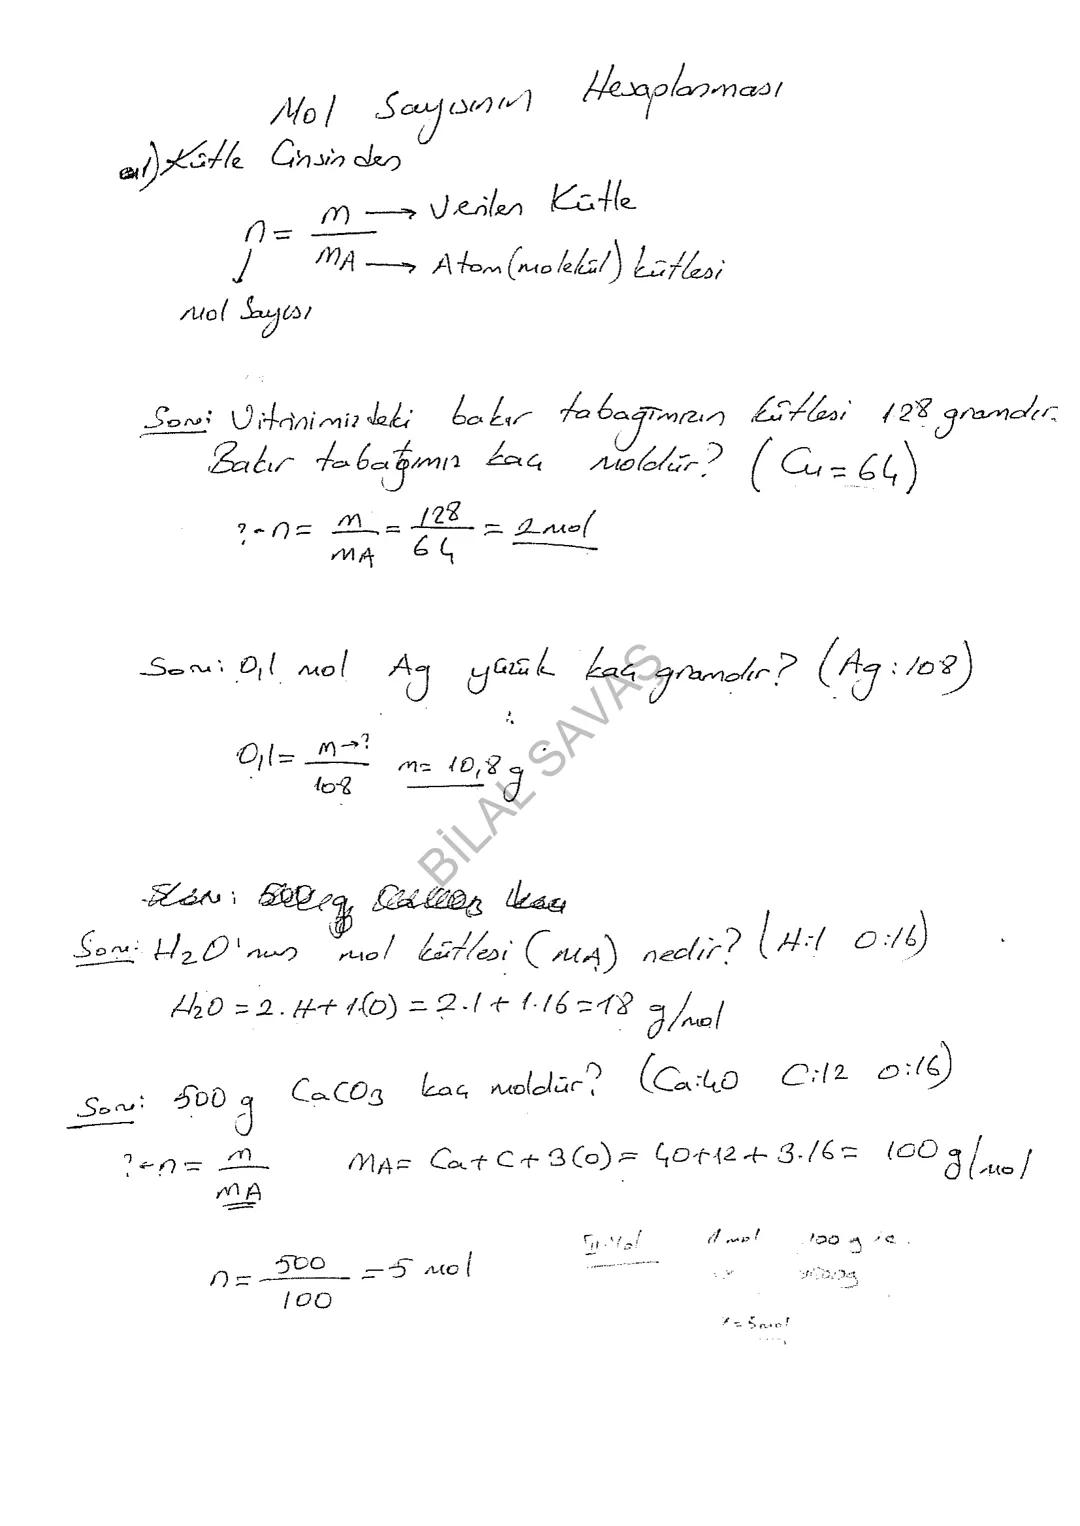 Mol Sayısının Hesaplanması
1) Kütle Cinsinden
n = m → Verilen Kütle
MA → Atom (molekül) kütlesi
↓
mol Sayısı
Soru: Vitrinimizdeki bakır tabağımızın kütlesi 128 gramdır.
Bakır tabağımız kaç moldür? (Cu = 64)
? ← n = m/MA = 128/64 = 2 mol
Soru: 0,1 mol Ag yüzük kaç gramdır? (Ag: 108)
0,1 = m→?/108 m = 10,8 g
BİLAL SAVAŞ
Soru: H2O'nun mol kütlesi (MA) nedir? (H:1 O:16)
H2O = 2.H + 1(O) = 2.1 + 1.16 = 18 g/mol
Soru: 500 g CaCO3 kaç moldür? (Ca:40 C:12 O:16)
? ← n = m/MA MA = Ca + C + 3(O) = 40 + 12 + 3.16 = 100 g/mol
n = 500/100 = 5 mol
II. Yol 1 mol 100 g ise
x 500 g
x = 5 mol